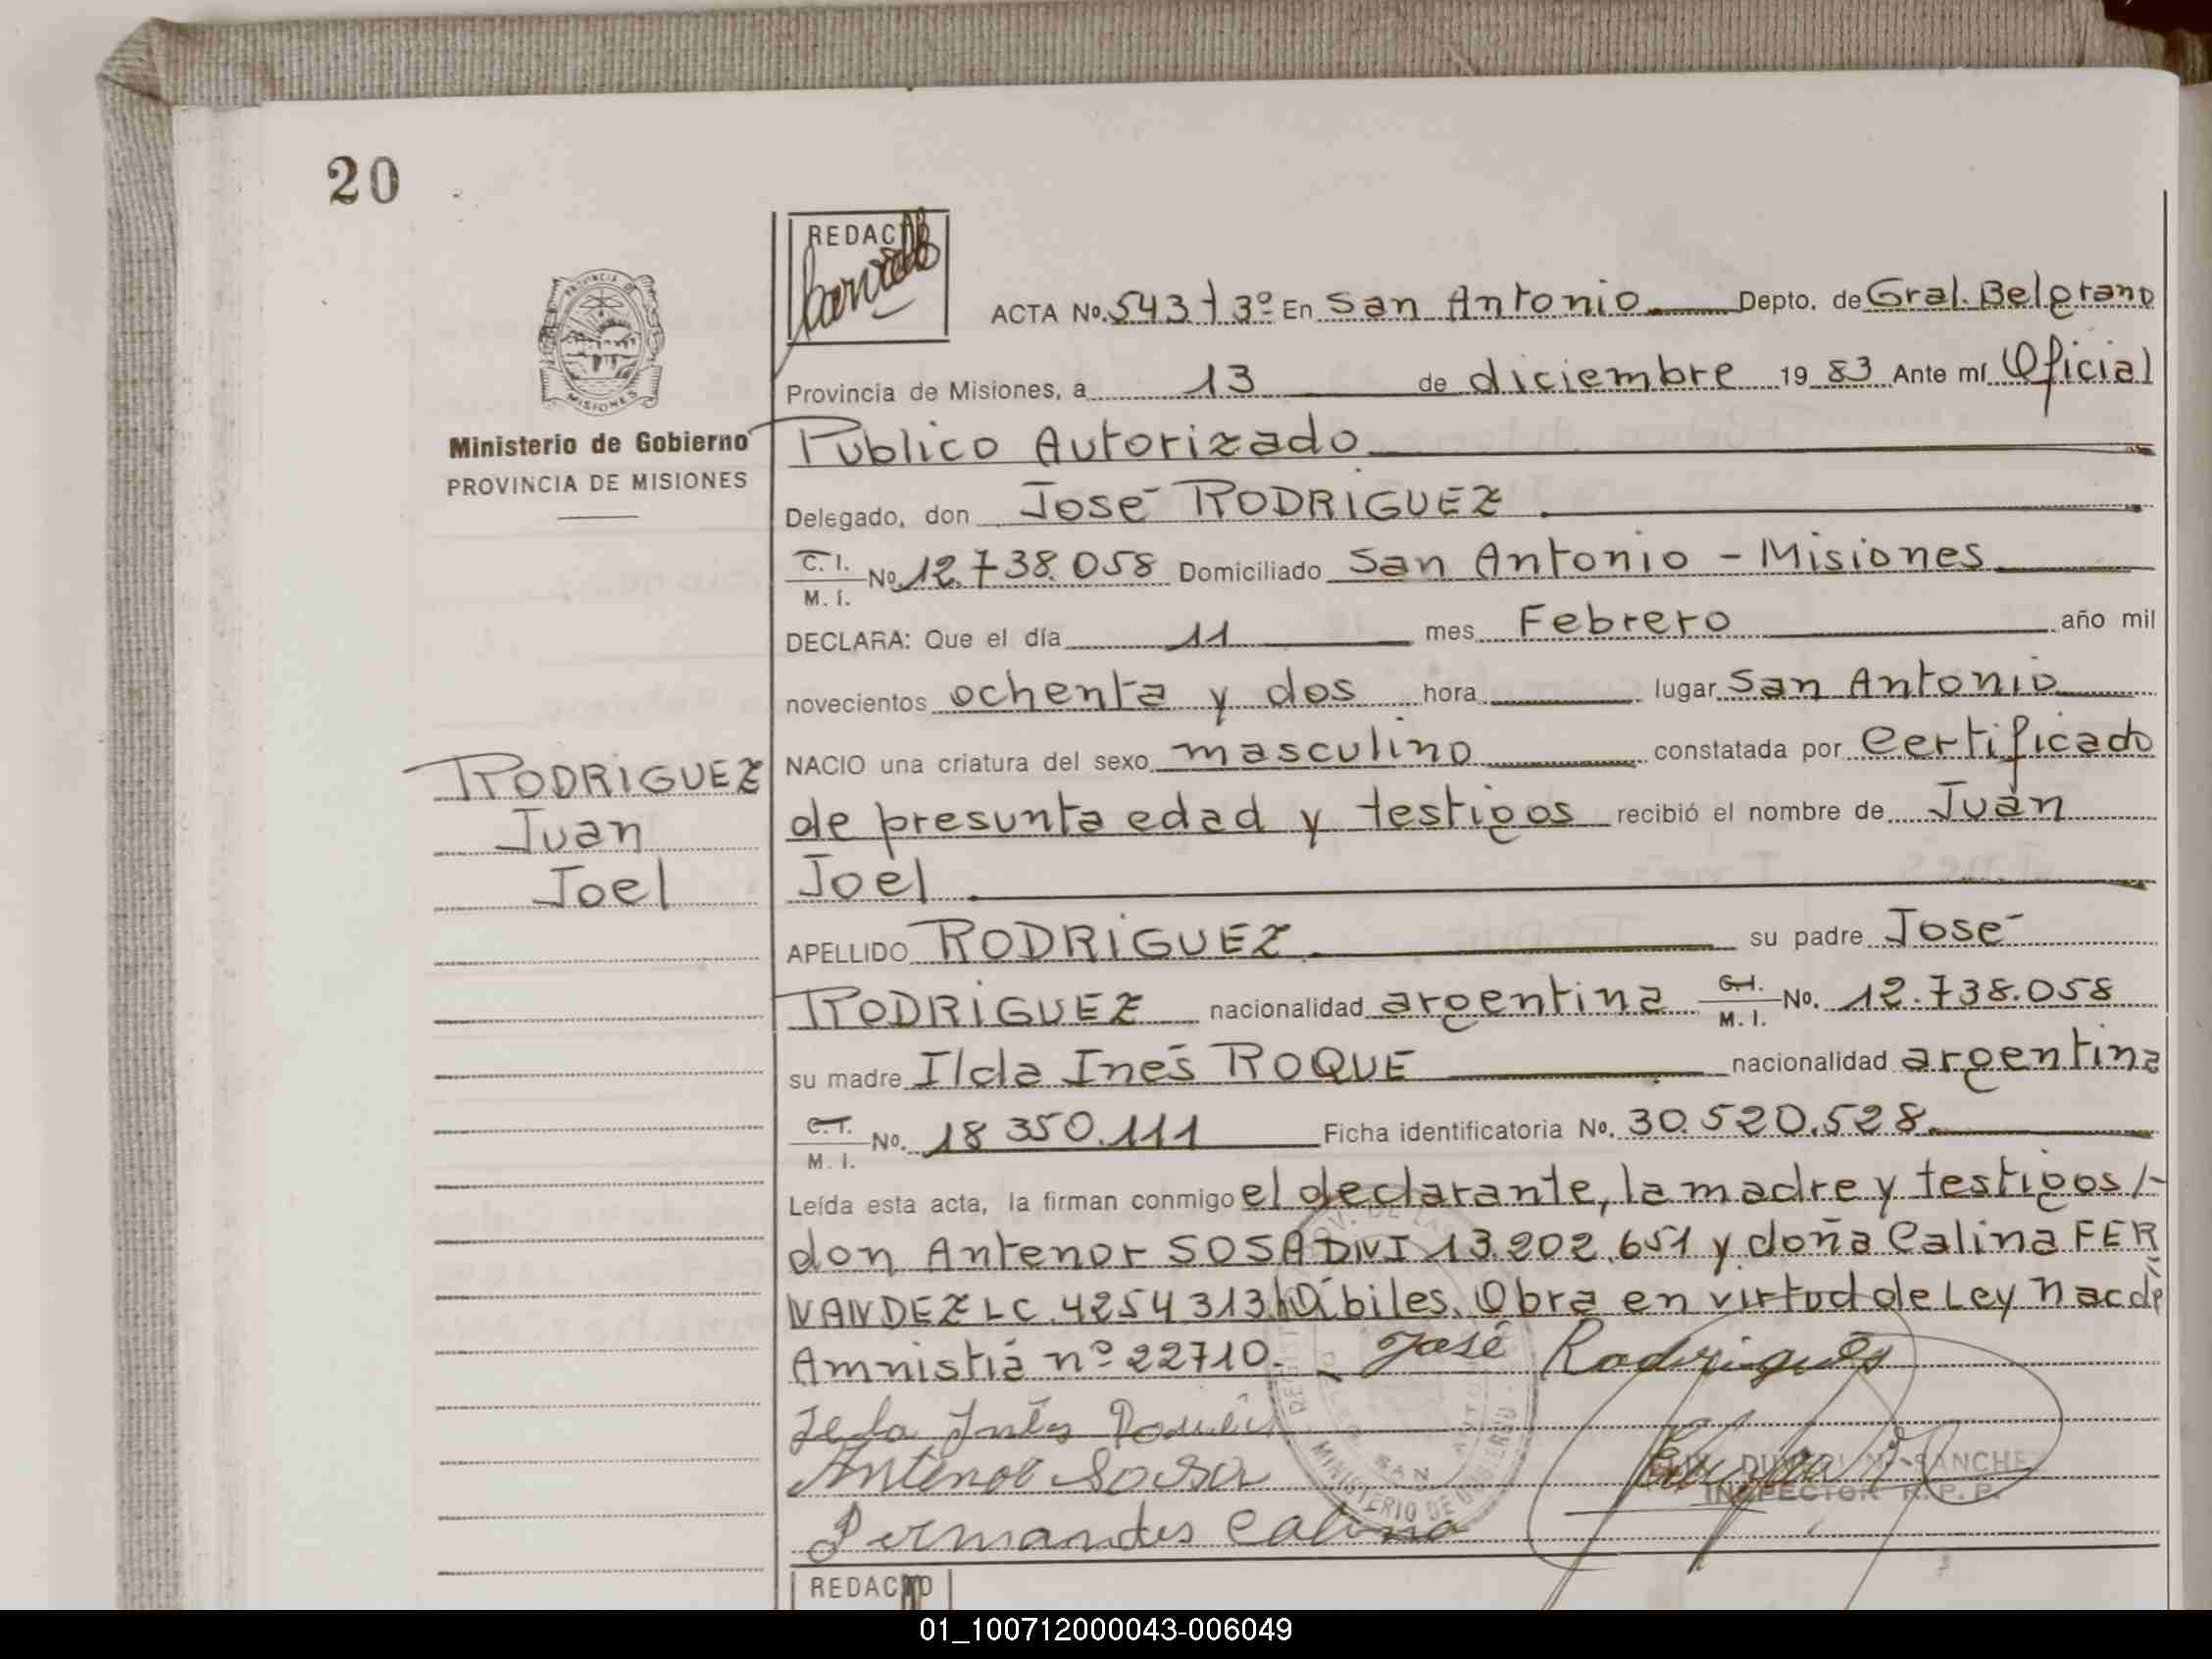 20
REDACTO
ACTA No. 543 T 3º En San Antonio Depto. de Gral. Belgrano
Provincia de Misiones, a 13 de diciembre 1983 Ante mí Oficial
Ministerio de Gobierno
PROVINCIA DE MISIONES
Público Autorizado
Delegado, don José RODRIGUEZ
C. I. M. I. No. 12.738.058 Domiciliado San Antonio - Misiones
DECLARA: Que el día 11 mes Febrero año mil
novecientos ochenta y dos hora lugar San Antonio
NACIO una criatura del sexo masculino constatada por Certificado
RODRIGUEZ
Juan
Joel
de presunta edad y testigos recibió el nombre de Juan
Joel
APELLIDO RODRIGUEZ su padre José
RODRIGUEZ nacionalidad argentina C.I. M. I. No. 12.738.058
su madre Ilda Inés ROQUE nacionalidad argentina
C.I. M. I. No. 18 350.111 Ficha identificatoria No. 30.520.528
Leída esta acta, la firman conmigo el declarante, la madre y testigos /-
don Antenor SOSA DNI 13.202.651 y doña Calina FER
NANDEZ LC. 4254313 hábiles. Obra en virtud de Ley Nac de
Amnistia nº 22710.- José Rodrigues
Inés
Antenor Sosa
Fernandes Calina
SANCHE
INSPECTOR R. P. P.
MINISTERIO DE GOBIERNO
SAN ANTO
REDACTO
01_100712000043-006049